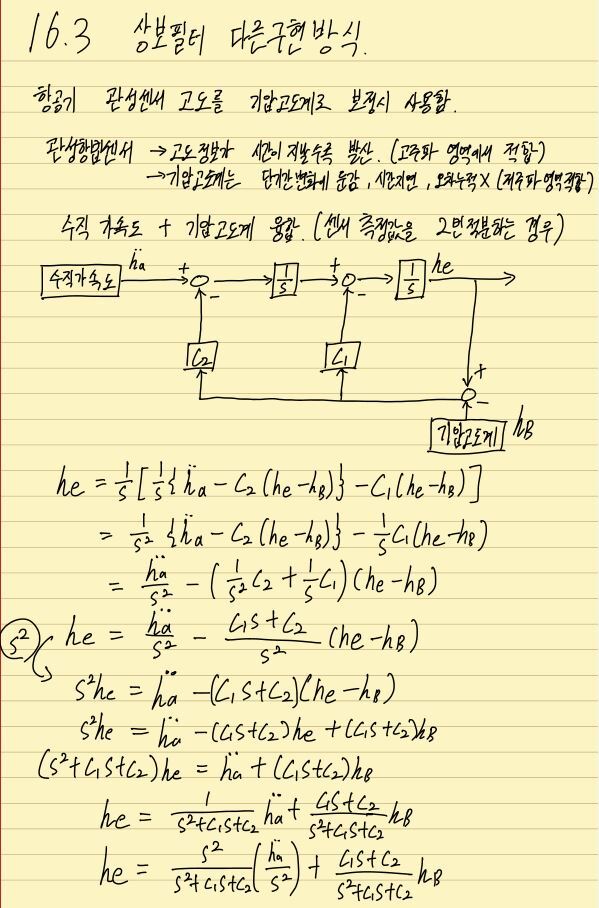 16.3 상보필터 다른구현방식.
항공기 관성센서 고도를 기압고도계로 보정시 사용함.
관성항법센서 → 고도정보가 시간이 지날수록 발산. (고주파 영역에서 적합)
→ 기압고도계는 단기간변화에 둔감, 시간지연, 오차누적X (저주파영역적합)
수직 가속도 + 기압고도계 융합. (센서 측정값을 2번적분하는 경우)
수직가속도 ḧa + - 1/s + - 1/s he
C2 C1 +
-
기압고도계 hB
he = 1/s [1/s{ḧa - C2(he-hB)} - C1(he-hB)]
= 1/s² {ḧa - C2(he-hB)} - 1/s C1(he-hB)
= ḧa/s² - (1/s² C2 + 1/s C1)(he-hB)
s² he = ḧa/s² - (C1s+C2)/s² (he-hB)
s²he = ḧa - (C1s+C2)(he-hB)
s²he = ḧa - (C1s+C2)he + (C1s+C2)hB
(s²+C1s+C2)he = ḧa + (C1s+C2)hB
he = 1/(s²+C1s+C2) ḧa + (C1s+C2)/(s²+C1s+C2) hB
he = s²/(s²+C1s+C2) (ḧa/s²) + (C1s+C2)/(s²+C1s+C2) hB